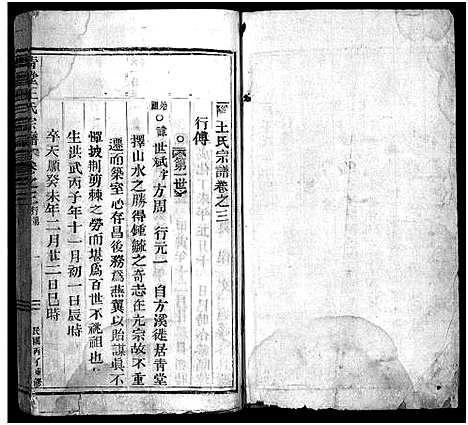 王氏宗譜卷之三
行傳
第一世
始祖 諱世斌字方周 行元一 自方溪徙居青堂
擇山水之勝得鍾毓之奇志在亢宗故不重
遷而築室心存昌後務為燕翼以貽謀眞不
憚披荆剪棘之勞而堪為百世不祧祖也
生洪武丙子年十一月初一日辰時
卒天順癸未年二月廿二日巳時
王氏宗譜 卷之三 行第 一
民國丙丁重修